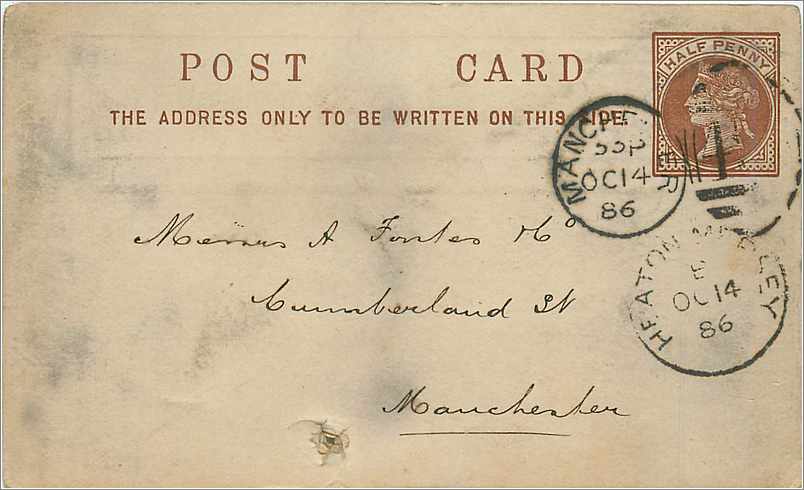 POST CARD
HALF PENNY
THE ADDRESS ONLY TO BE WRITTEN ON THIS SIDE.
MANCHESTER
OC 14
86
Messrs A Forbes & Co
Cumberland St
Manchester
HEATON MERSEY
E
OC 14
86